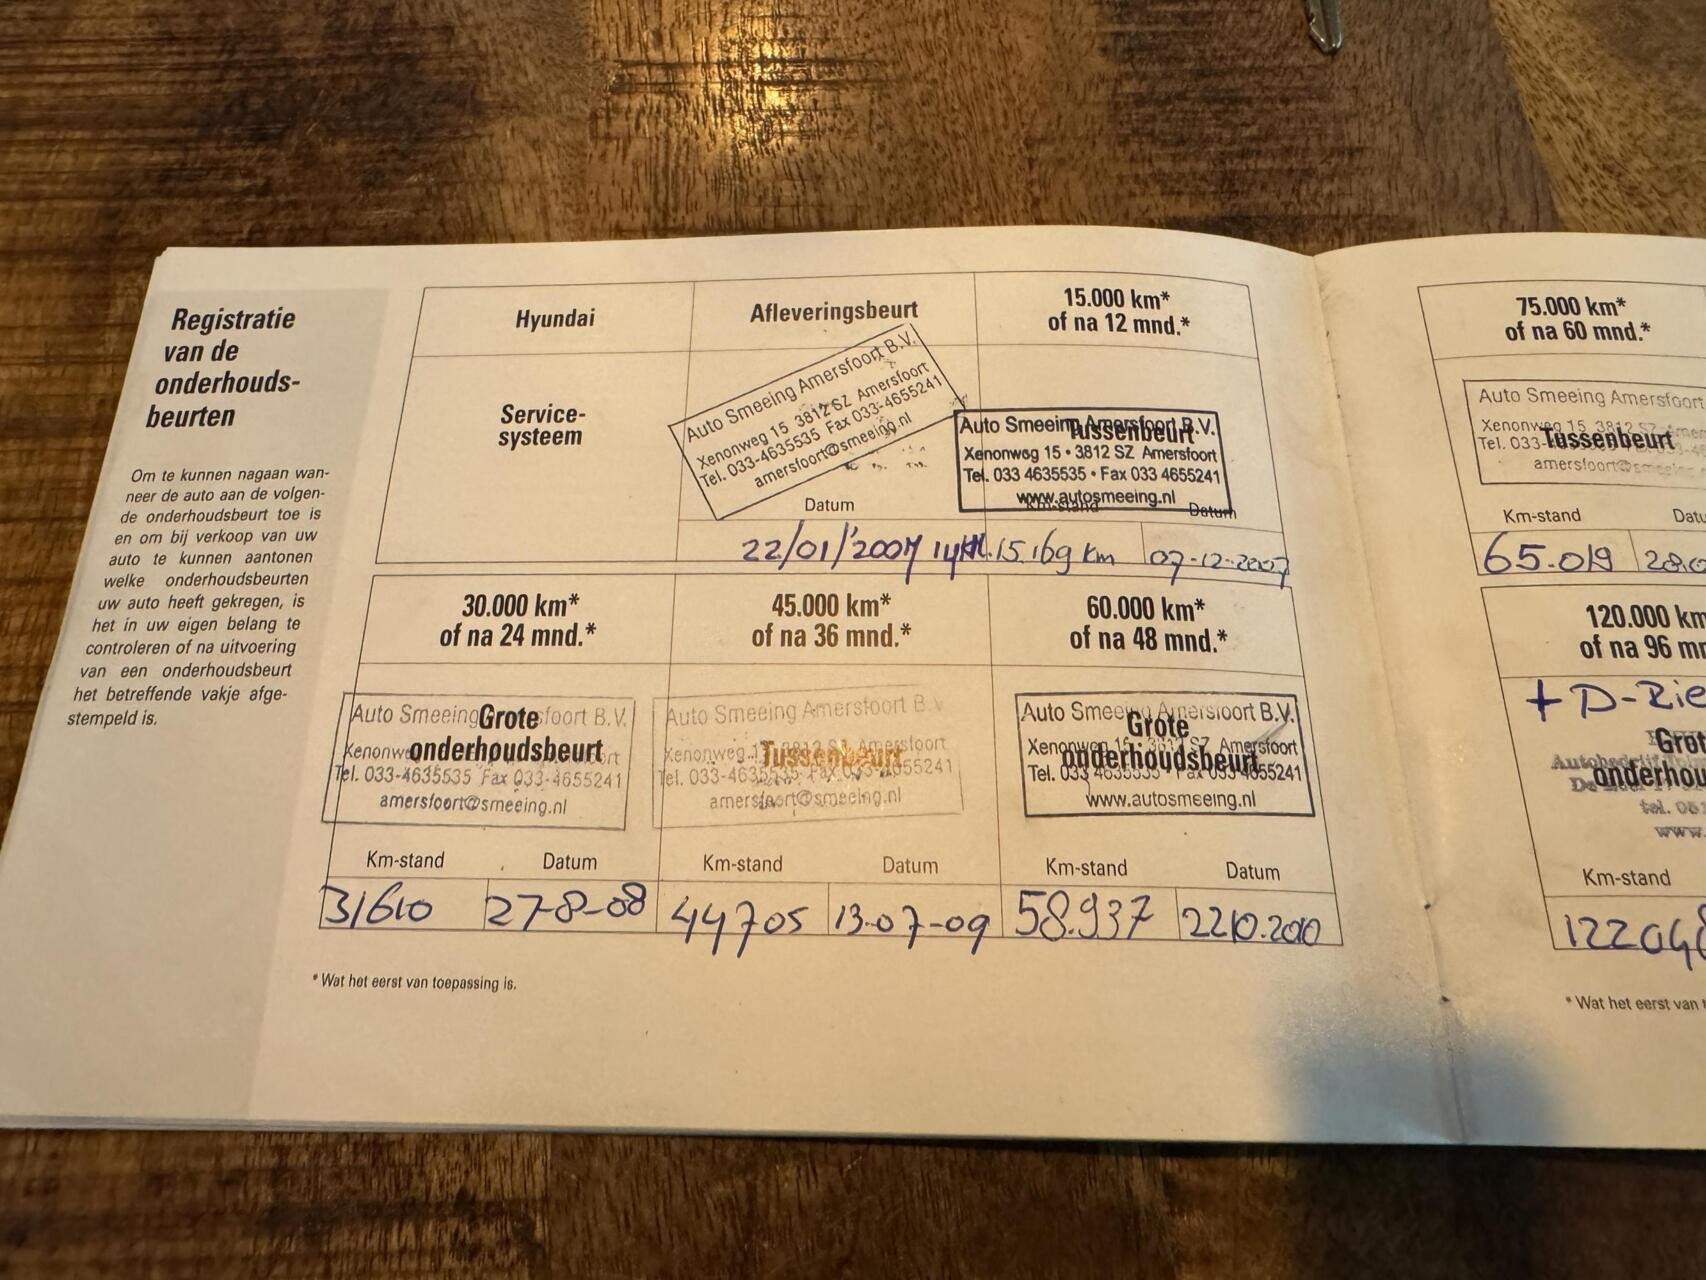 Registratie
van de
onderhouds-
beurten
Om te kunnen nagaan wan-
neer de auto aan de volgen-
de onderhoudsbeurt toe is
en om bij verkoop van uw
auto te kunnen aantonen
welke onderhoudsbeurten
uw auto heeft gekregen, is
het in uw eigen belang te
controleren of na uitvoering
van een onderhoudsbeurt
het betreffende vakje afge-
stempeld is.
Hyundai
Service-
systeem
Afleveringsbeurt
Auto Smeeing Amersfoort B.V.
Xenonweg 15 3812 SZ Amersfoort
Tel. 033-4635535 Fax 033-4655241
amersfoort@smeeing.nl
Datum
22/01/2007
15.000 km*
of na 12 mnd.*
Tussenbeurt
Auto Smeeing Amersfoort B.V.
Xenonweg 15 • 3812 SZ Amersfoort
Tel. 033 4635535 • Fax 033 4655241
www.autosmeeing.nl
Km-stand Datum
15.169 km 07-12-2007
30.000 km*
of na 24 mnd.*
Grote
onderhoudsbeurt
Auto Smeeing Amersfoort B.V.
Xenonweg
Tel. 033-4635535 Fax 033-4655241
amersfoort@smeeing.nl
Km-stand Datum
31610 27-8-08
45.000 km*
of na 36 mnd.*
Tussenbeurt
Auto Smeeing Amersfoort B.V.
Xenonweg 15 3812 SZ Amersfoort
Tel. 033-4635535 Fax 033-4655241
amersfoort@smeeing.nl
Km-stand Datum
44705 13-07-09
60.000 km*
of na 48 mnd.*
Grote
onderhoudsbeurt
Auto Smeeing Amersfoort B.V.
Xenonweg 15 • 3812 SZ Amersfoort
Tel. 033 4635535 • Fax 033 4655241
www.autosmeeing.nl
Km-stand Datum
58.937 22.10.2010
* Wat het eerst van toepassing is.
75.000 km*
of na 60 mnd.*
Tussenbeurt
Auto Smeeing Amersfoort
Xenonweg 15 3812 SZ
Tel. 033-
amersfoort@smeeing
Km-stand
65.019
120.000 km
of na 96
+ D-Rie
Grot
onderhou
Autobedrijf
tel.
www.
Km-stand
* Wat het eerst van